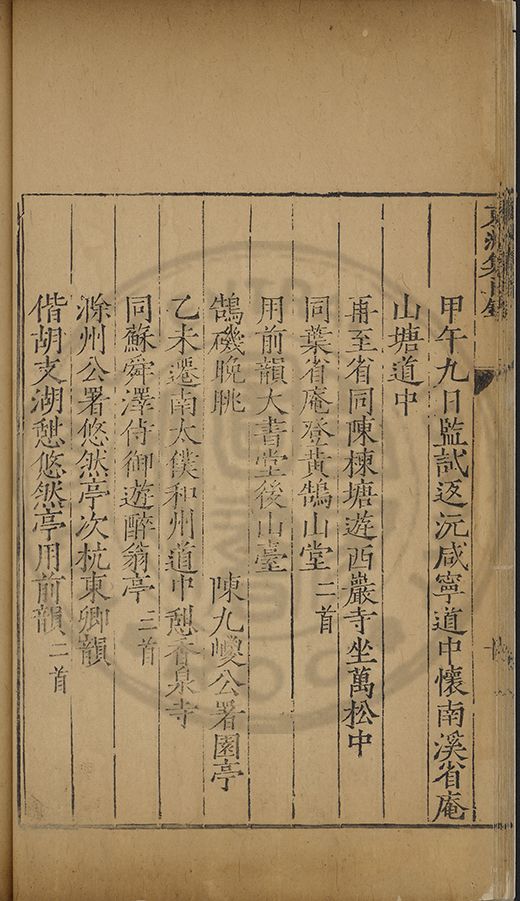 甲午九日監試返沅咸寧道中懷南溪省庵
山塘道中
再至省同陳棟塘遊西巖寺坐萬松中
同葉省庵登黃鵠山堂二首
用前韻大書堂後山臺
鵠磯晚眺 陳九㚇公署園亭
乙未遷南太僕和州道中憩香泉寺
同蘇舜澤侍御遊醉翁亭二首
滁州公署悠然亭次杭東卿韻
偕胡支湖憩悠然亭用前韻二首